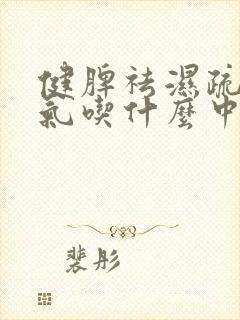 健脾祛濕疏
氣喫什麼中
裴彤